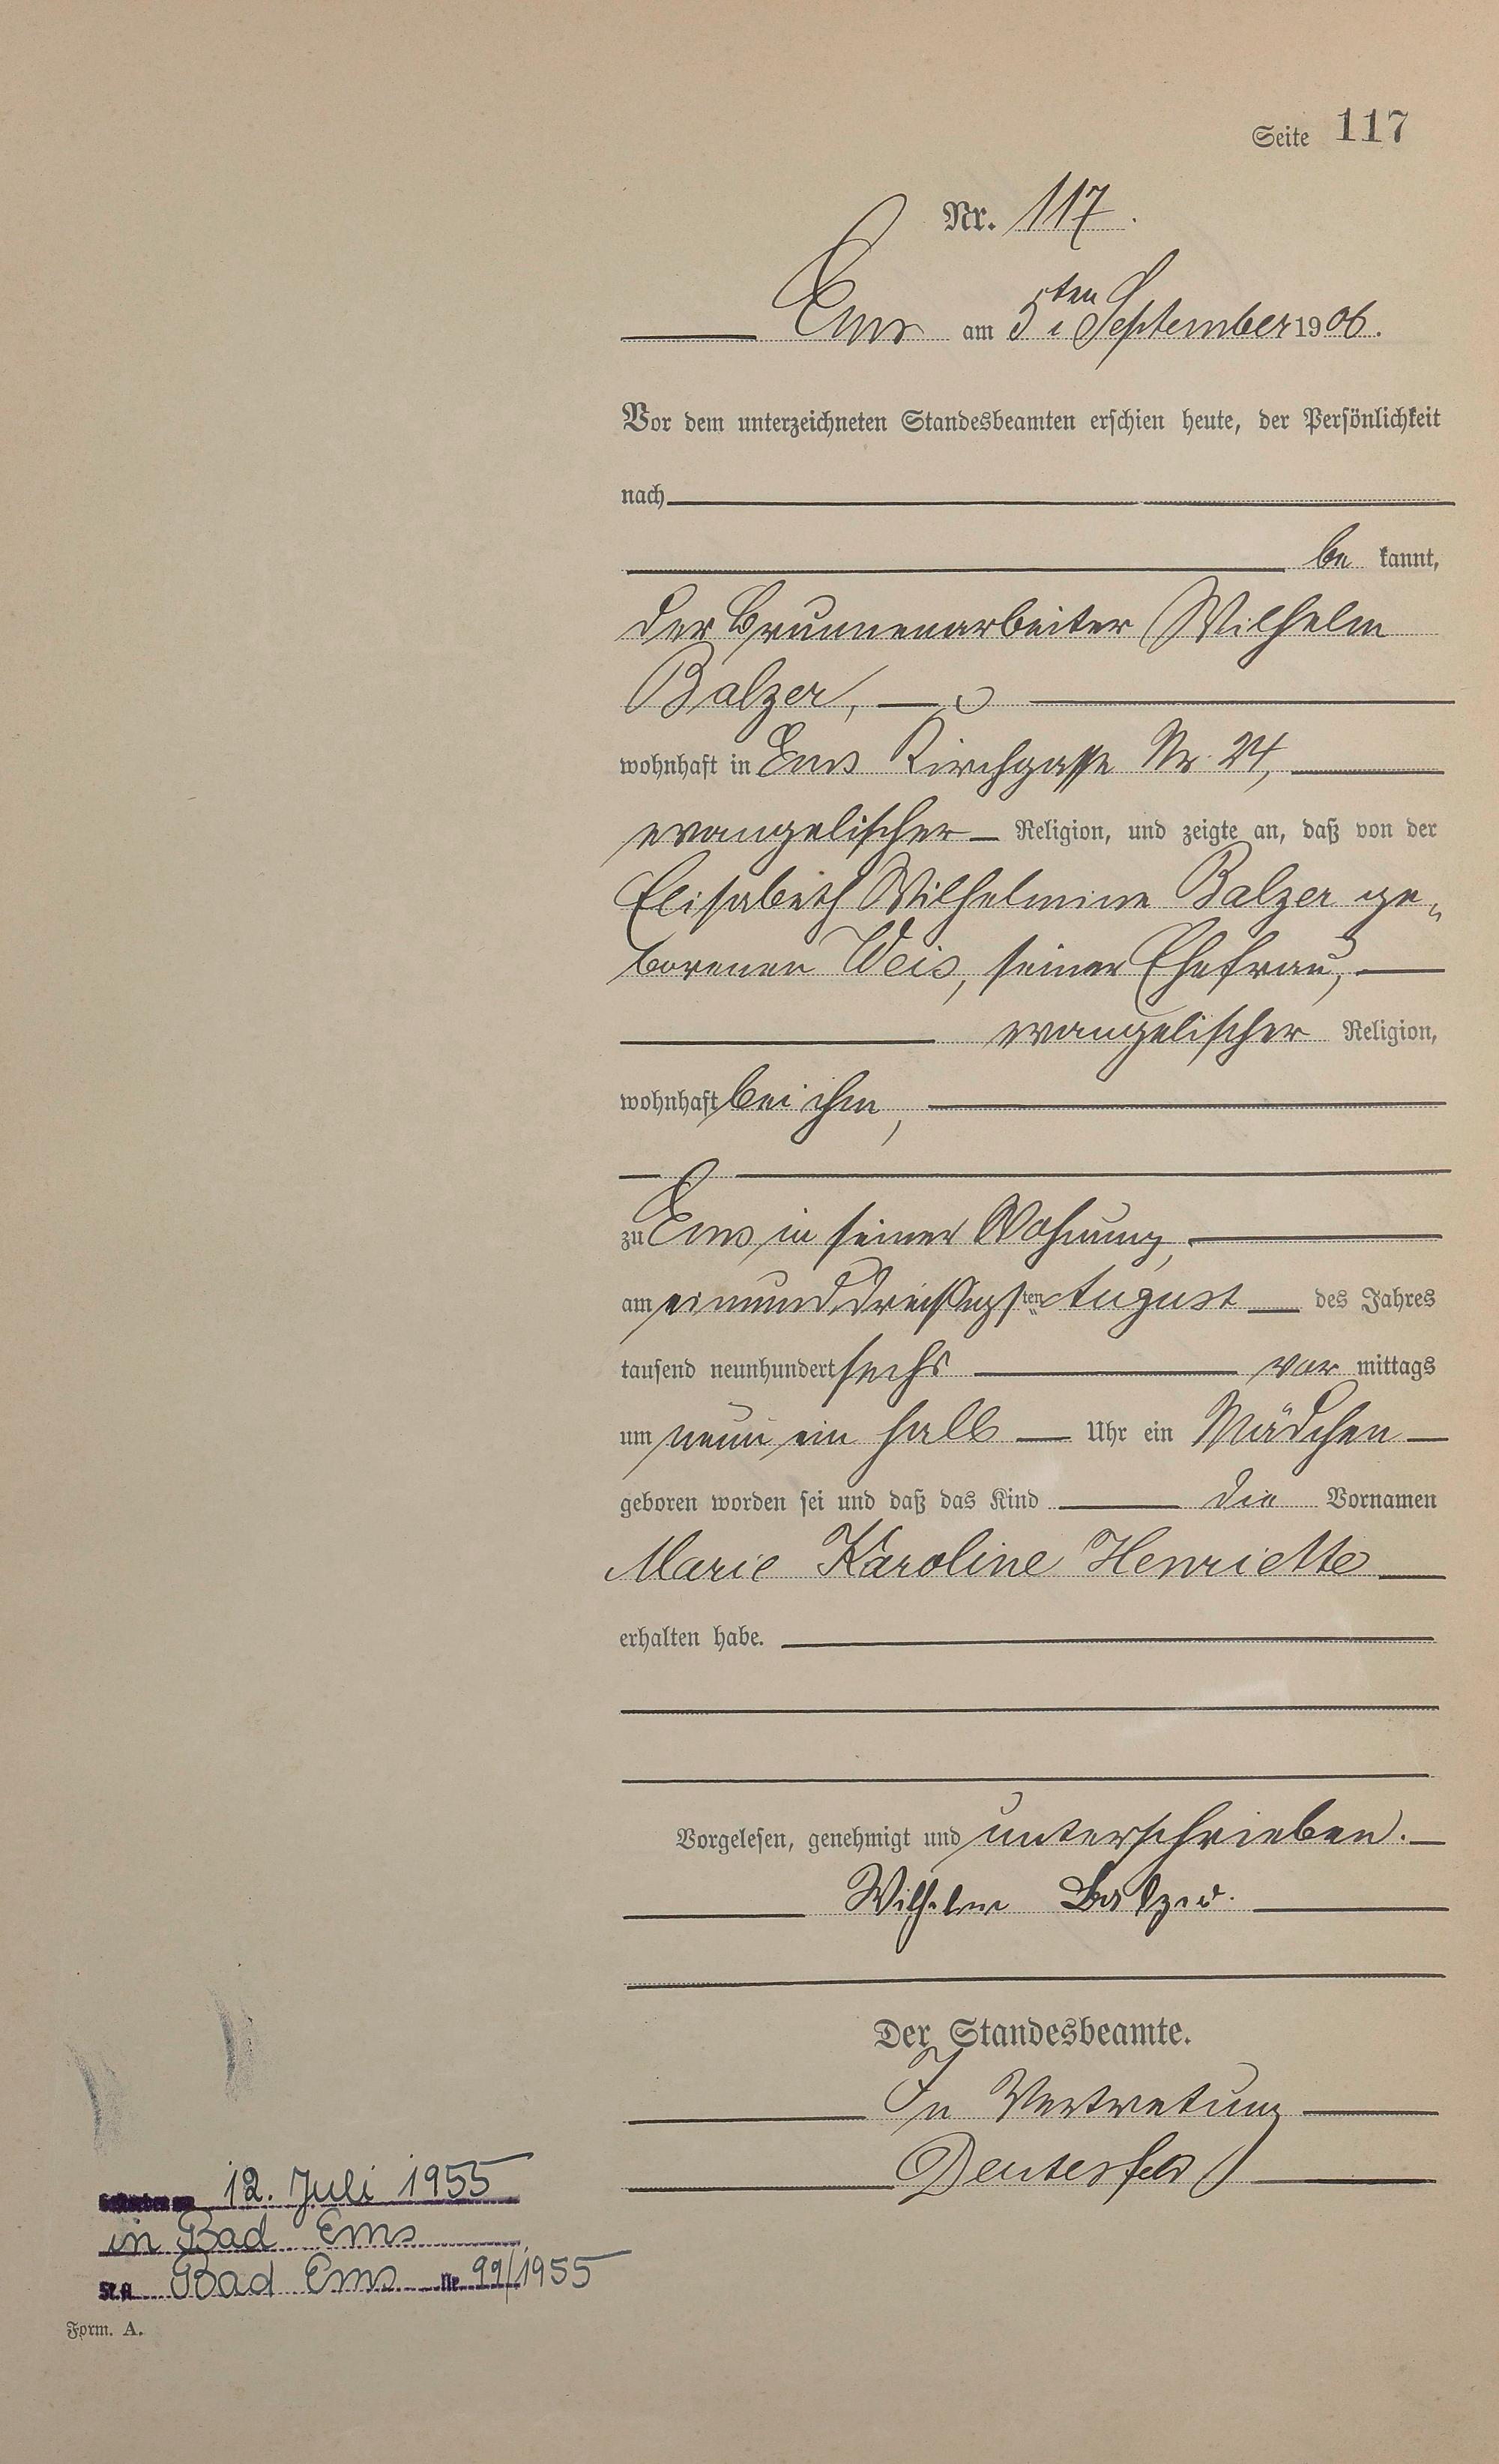 Seite 117
Nr. 117.
Ems am 5ten September 1906.
Vor dem unterzeichneten Standesbeamten erschien heute, der Persönlichkeit
nach
be kannt,
der Brunnenarbeiter Wilhelm
Balzer,
wohnhaft in Ems Kirchgasse Nr. 24,
evangelischer Religion, und zeigte an, daß von der
Elisabeth Wilhelmine Balzer ge„
borenen Weis, seiner Ehefrau,
evangelischer Religion,
wohnhaft bei ihm,
zu Ems in seiner Wohnung,
am einunddreißigsten August des Jahres
tausend neunhundert sechs vor mittags
um neun ein halb Uhr ein Mädchen
geboren worden sei und daß das Kind die Vornamen
Marie Karoline Henriette
erhalten habe.
Vorgelesen, genehmigt und unterschrieben.
Wilhelm Balzer.
Der Standesbeamte.
In Vertretung
Deutesfeld
Gestorben am 12. Juli 1955
in Bad Ems
St.A. Bad Ems Nr. 99/1955
Form. A.